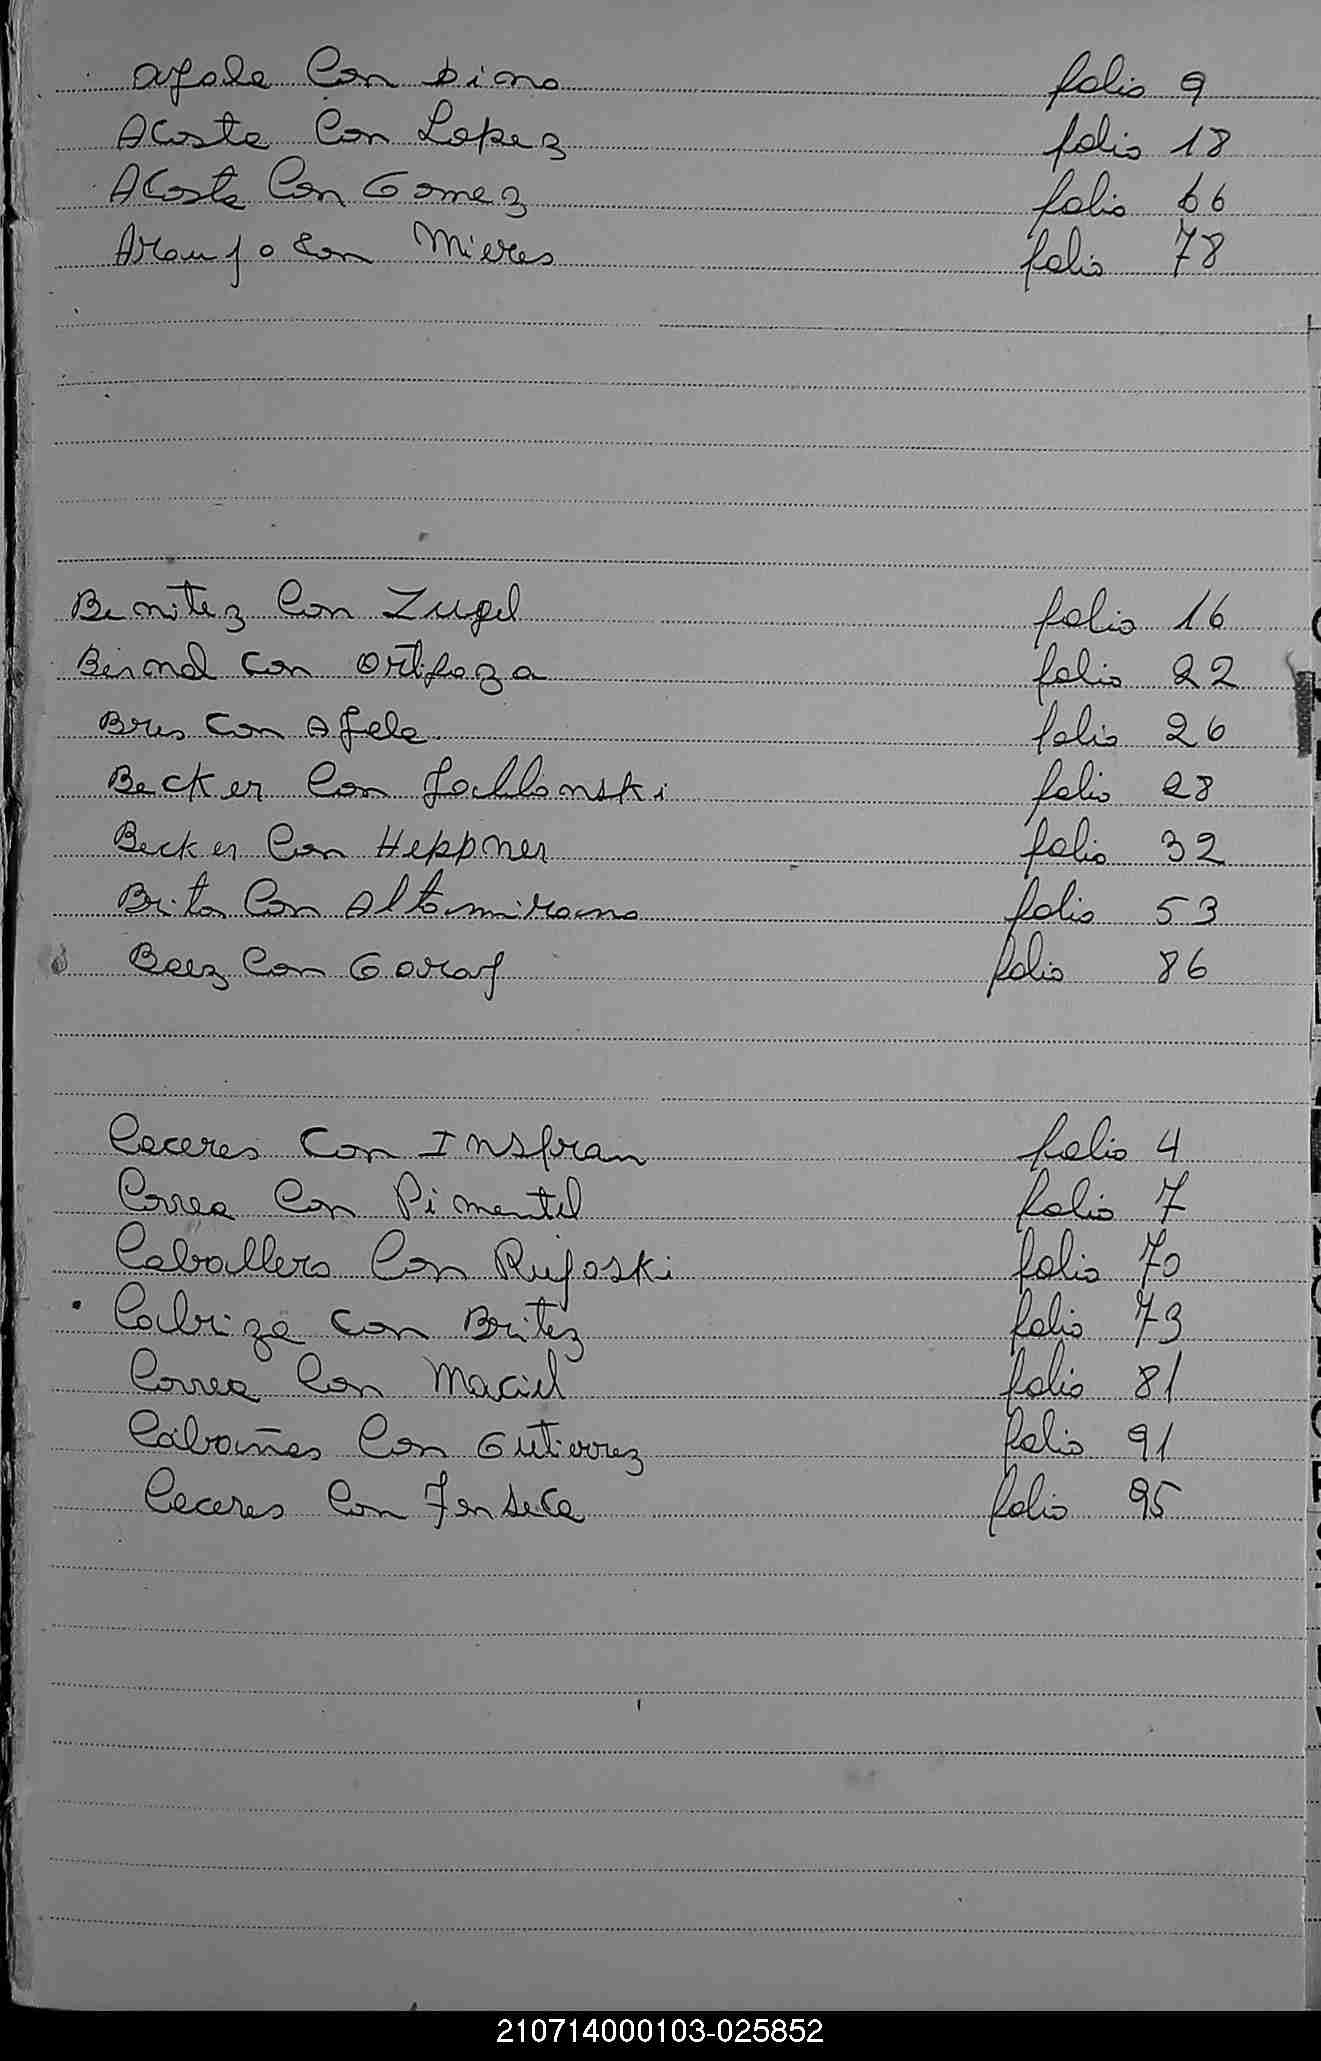 Ayala Con Dino folio 9
Acosta Con Lopez folio 18
Acosta Con Gomez folio 66
Araujo Con Mieres folio 78
Benitez Con Zugel folio 16
Bernal Con folio 22
Con folio 26
Becker Con folio 28
Becker Con Heppner folio 32
Brito Con Altamirano folio 53
Baez Con Garay folio 86
Caceres Con Insfran folio 4
Correa Con Pimentel folio 7
Caballero Con folio 70
Cabriza Con Britez folio 73
Correa Con Maciel folio 81
Cabañas Con Gutierrez folio 91
Caceres Con Fonseca folio 95
210714000103-025852